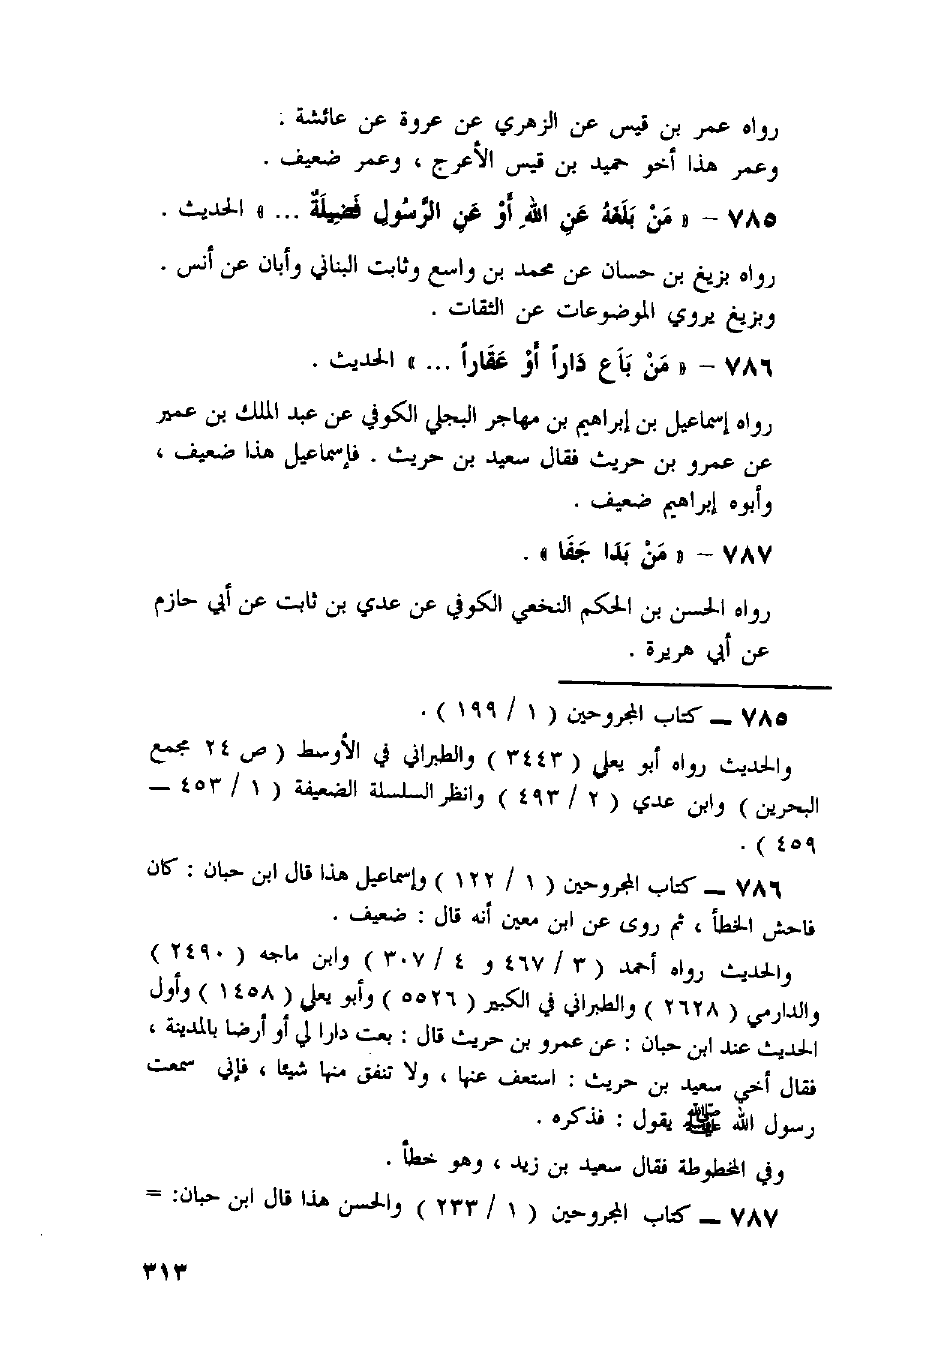 رواه عمر بن قيس عن الزهري عن عروة عن عائشة .
وعمر هذا أخو حميد بن قيس الأعرج ، وعمر ضعيف .
٧٨٥ – « مَنْ بَلَغَهُ عَنِ اللهِ أَوْ عَنِ الرَّسُولِ فَضِيلَةٌ ... » الحديث .
رواه بزيغ بن حسان عن محمد بن واسع وثابت البناني وأبان عن أنس .
وبزيغ يروي الموضوعات عن الثقات .
٧٨٦ – « مَنْ بَاَع دَاراً أَوْ عَقَاراً ... » الحديث .
رواه إسماعيل بن إبراهيم بن مهاجر البجلي الكوفي عن عبد الملك بن عمير
عن عمرو بن حريث فقال سعيد بن حريث . فإسماعيل هذا ضعيف ،
وأبوه إبراهيم ضعيف .
٧٨٧ – « مَنْ بَدَا جَفَا » .
رواه الحسن بن الحكم النخعي الكوفي عن عدي بن ثابت عن أبي حازم
عن أبي هريرة .
٧٨٥ ــ كتاب المجروحين ( ١ / ١٩٩ ) .
والحديث رواه أبو يعلي ( ٣٤٤٣ ) والطبراني في الأوسط ( ص ٢٤ مجمع
البحرين ) وابن عدي ( ٢ / ٤٩٣ ) وانظر السلسلة الضعيفة ( ١ / ٤٥٣ ــ
٤٥٩ ) .
٧٨٦ ــ كتاب المجروحين ( ١ / ١٢٢ ) وإسماعيل هذا قال ابن حبان : كان
فاحش الخطأ ، ثم روى عن ابن معين أنه قال : ضعيف .
والحديث رواه أحمد ( ٣ / ٤٦٧ و ٤ / ٣٠٧ ) وابن ماجه ( ٢٤٩٠ )
والدارمي ( ٢٦٢٨ ) والطبراني في الكبير ( ٥٥٢٦ ) وأبو يعلي ( ١٤٥٨ ) وأول
الحديث عند ابن حبان : عن عمرو بن حريث قال : بعت دارا لي أو أرضا بالمدينة ،
فقال أخي سعيد بن حريث : استعف عنها ، ولا تنفق منها شيئا ، فإني سمعت
رسول الله ﷺ يقول : فذكره .
وفي المخطوطة فقال سعيد بن زيد ، وهو خطأ .
٧٨٧ ــ كتاب المجروحين ( ١ / ٢٣٣ ) والحسن هذا قال ابن حبان: =
٣١٣